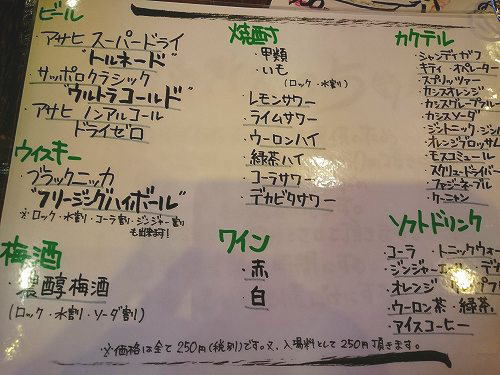 ビール
・アサヒ スーパードライ
"トルネード"
・サッポロクラシック
"ウルトラコールド"
・アサヒ ノンアルコール
ドライゼロ
ウィスキー
・ブラックニッカ
"フリージングハイボール"
※・ロック・水割・コーラ割・ジンジャー割
も出来ます!
梅酒
・濃醇梅酒
(ロック・水割・ソーダ割)
焼酎
・甲類
・いも
(ロック・水割)
・レモンサワー
・ライムサワー
・ウーロンハイ
・緑茶ハイ
・コーラサワー
・デカビタサワー
ワイン
・赤
・白
カクテル
・シャンディガフ
・キティ・オペレーター
・スプリッツァー
・カシスオレンジ
・カシスグレープフル
・カシスソーダ
・ジントニック・ジン
・オレンジブロッサム
・モスコミュール
・スクリュードライバー
・ファジーネーブル
・クーニャン
ソフトドリンク
・コーラ ・トニックウォー
・ジンジャーエール・デカ
・オレンジ
・ウーロン茶・緑茶
・アイスコーヒー
※価格は全て250円(税別)です。又、入場料として250円頂きます。